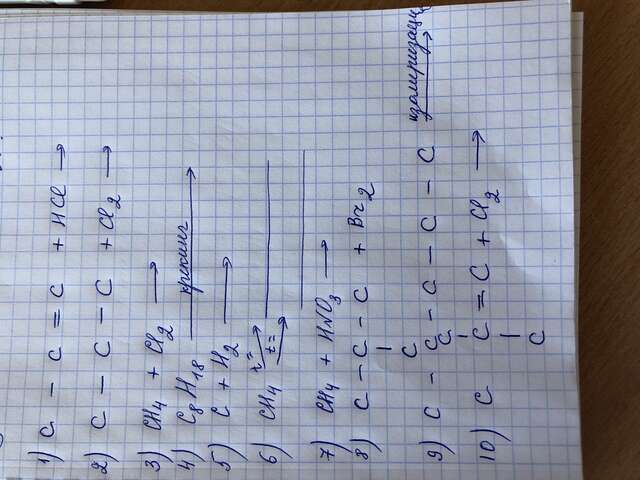 1) C - C = C + HCl →
2) C - C - C + Cl₂ →
3) CH₄ + Cl₂ →
4) C₈H₁₈ крекинг →
5) C + H₂ →
6) CH₄ t= → ______
t= → ______
7) CH₄ + HNO₃ →
8) C - C - C + Br₂
|
C
9) C - C - C - C - C изомеризация →
10) C C = C + Cl₂ →
C | |
C